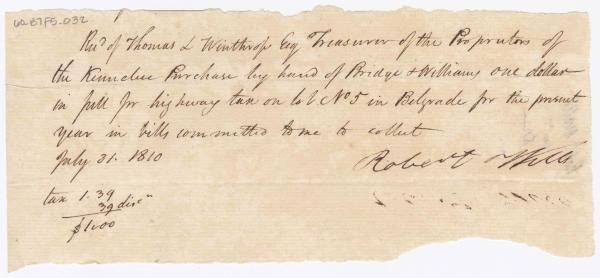 62E7F5-032
Rec'd of Thomas L Winthrop Esq Treasurer of the Proprietors of
the Kennebec Purchase by hand of Bridge & Williams one dollar
in full for highway tax on lot No 5 in Belgrade for the present
year in bills committed to me to collect
July 31. 1810
Robert Wills
tax 1.39
39 disc
$1.00